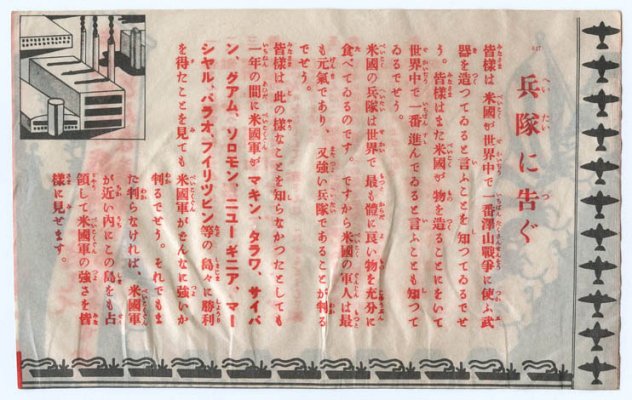 兵隊に告ぐ
皆樣は米國が世界中で一番澤山戰爭に使ふ武
器を造つてゐると言ふことを知つてゐるでせ
う。皆樣はまた米國が物を造ることにをいて
世界中で一番進んでゐると言ふことも知つて
ゐるでせう。
米國の兵隊は世界で最も體に良い物を充分に
食べてゐるのです。ですから米國の軍人は最
も元氣であり、又强い兵隊であることが判る
でせう。
皆樣は此の樣なことを知らなかつたとしても
一年の間に米國軍が マキン、タラワ、サイパ
ン、グアム、ソロモン、ニユーギニア、マー
シヤル、パラオ、フイリツピン等の島々に勝利
を得たことを見ても米國軍がどんなに強いか
判るでせう。それでもま
た判らなければ、米國軍
が近い內にこの島をも占
領して米國軍の强さを皆
樣に見せます。